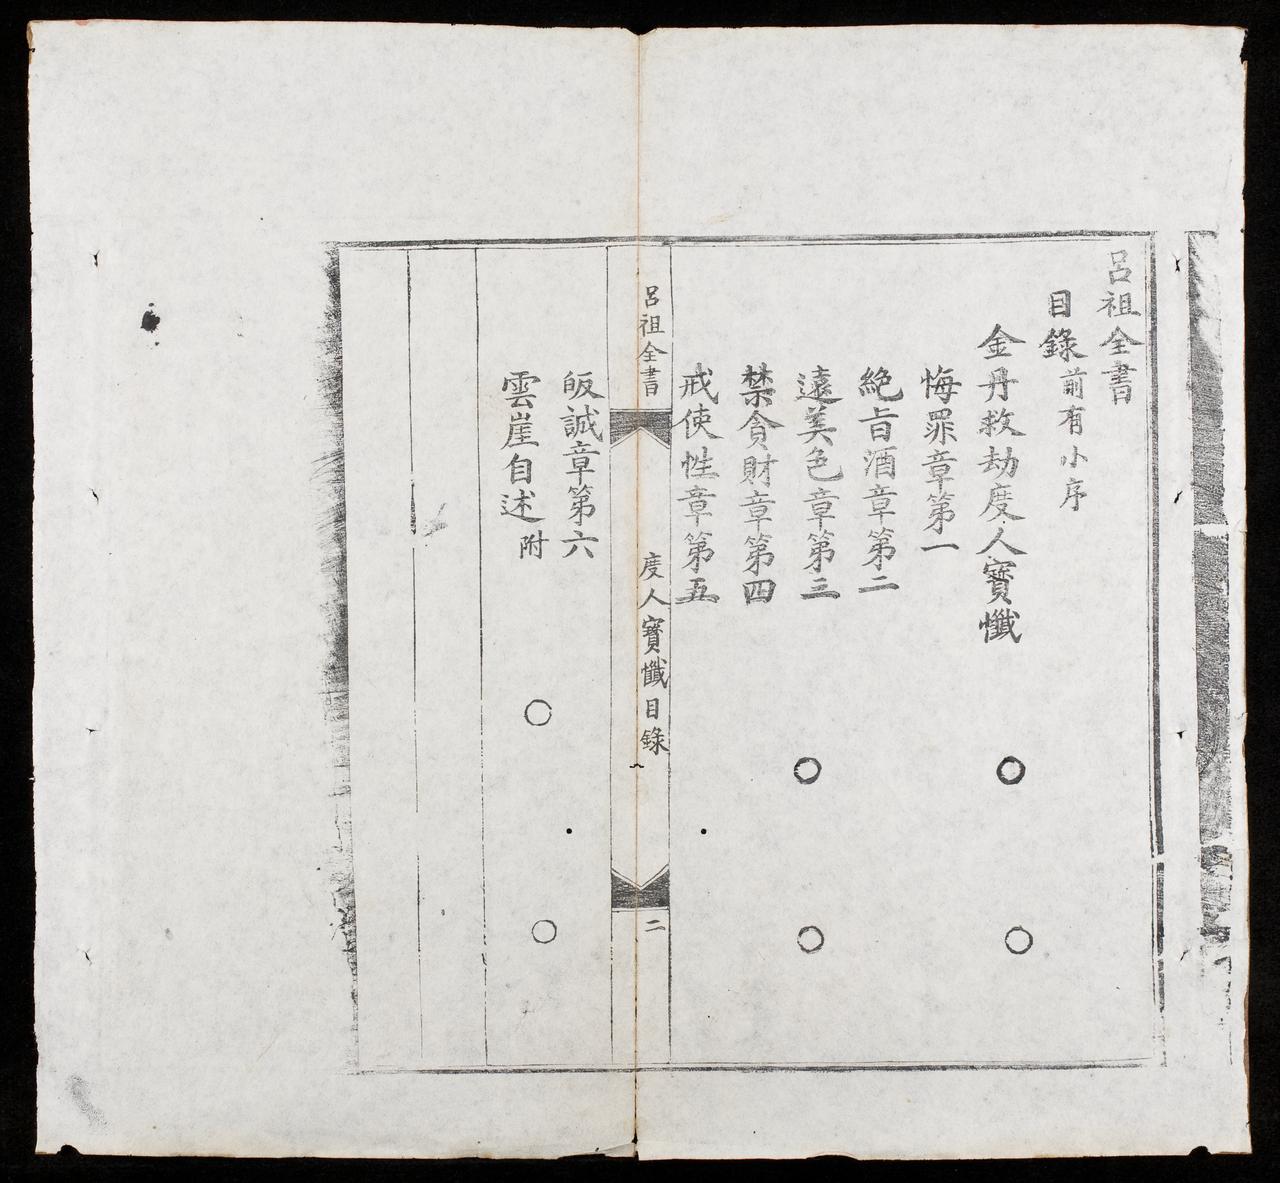 呂祖全書
目錄前有小序
金丹救劫度人寳懺
悔罪章第一
絶旨酒章第二
遠美色章第三
禁貪財章第四
戒使性章第五
呂祖全書 度人寳懺目錄 二
皈誠章第六
雲崖自述附